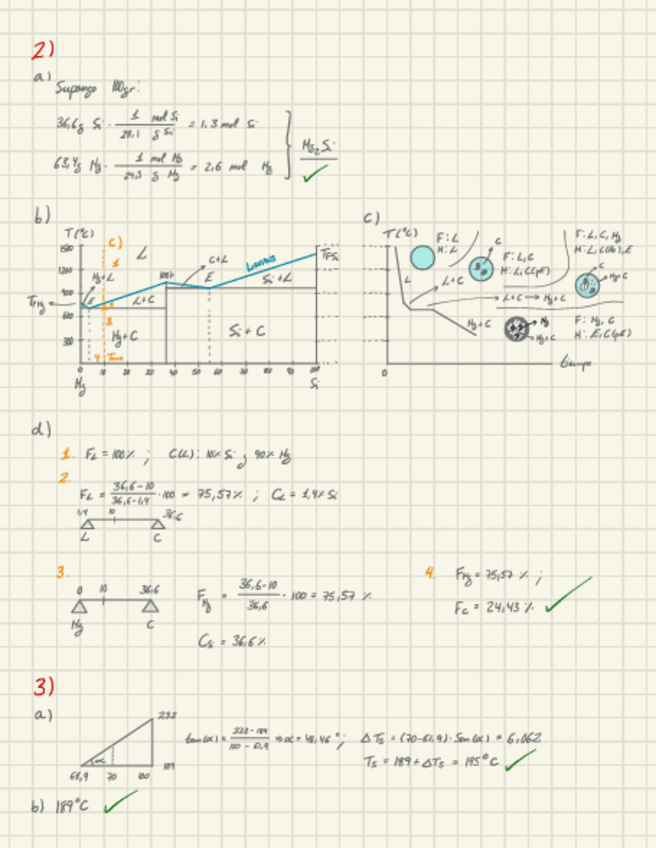 2)
a)
Supongo 100gr:
36,6g Si · 1 mol Si / 28,1 g Si = 1,3 mol Si
63,4g Mg · 1 mol Mg / 24,3 g Mg = 2,6 mol Mg
Mg₂Si
b)
c)
T(°C)
C)
L
1500
1200
900
600
300
Mg+L
E
L+C
C+L
E
Liquidus
Si+L
TFSi
TFMg
Mg+C
Si+C
0 10 20 30 40 50 60 70 80 90 100
Mg
Si
T(°C)
F: L
M: L
C
F: L, C
F: L, C, Mg
C
L
L+C
L+C → Mg+C
Mg+C
Mg
Mg+C
F: Mg, C
0
tiempo
d)
1. FL = 100% ; C(L): 10% Si y 90% Mg
2.
FL = 36,6-10 / 36,6-1,4 · 100 = 75,57% ; CL = 1,4% Si
1,4 10 36,6
L C
3.
0 10 36,6
Mg C
FMg = 36,6-10 / 36,6 · 100 = 75,57 %
CSi = 36,6%
4. FMg = 75,57 % ;
FC = 24,43 %
3)
a)
232
α
189
61,9 70 100
tan(α) = 232-189 / 100-61,9 ⇒ α = 48,46° ; ΔTs = (70-61,9) · Sen(α) = 6,062
Ts = 189 + ΔTs = 195°C
b) 189°C